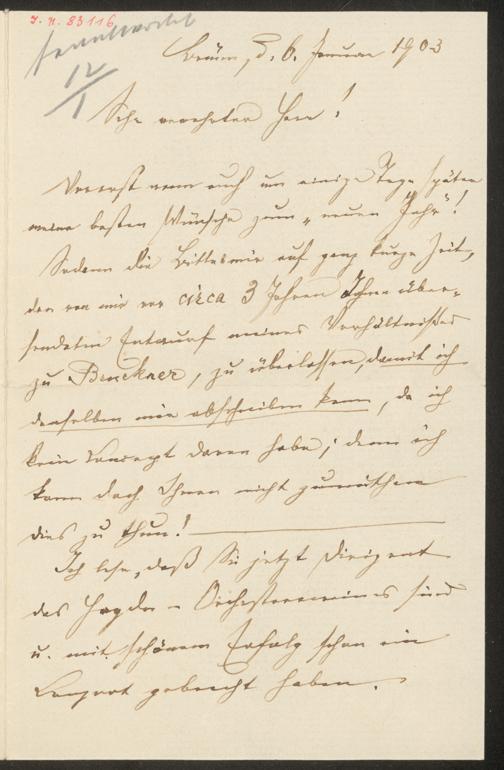 J. N. 83116
beantwortet
12/1
Brünn, d. 6. Januar 1903
Sehr verehrter Herr!
Vorerst wenn auch um einige Tage später
meine besten Wünsche zum „neuen Jahr“!
Sodann die Bitte mir auf ganz kurze Zeit,
den von mir vor circa 3 Jahren Ihnen über-
sendeten Entwurf meines Verhältnisses
zu Bruckner, zu überlassen, damit ich
denselben mir abschreiben kann, da ich
kein Concept davon habe; denn ich
kann doch Ihnen nicht zumuthen
dies zu thun!
Ich lese, daß Sie jetzt Dirigent
des Haydn-Orchestervereines sind
u. mit schönem Erfolg schon ein
Conzert gebracht haben.